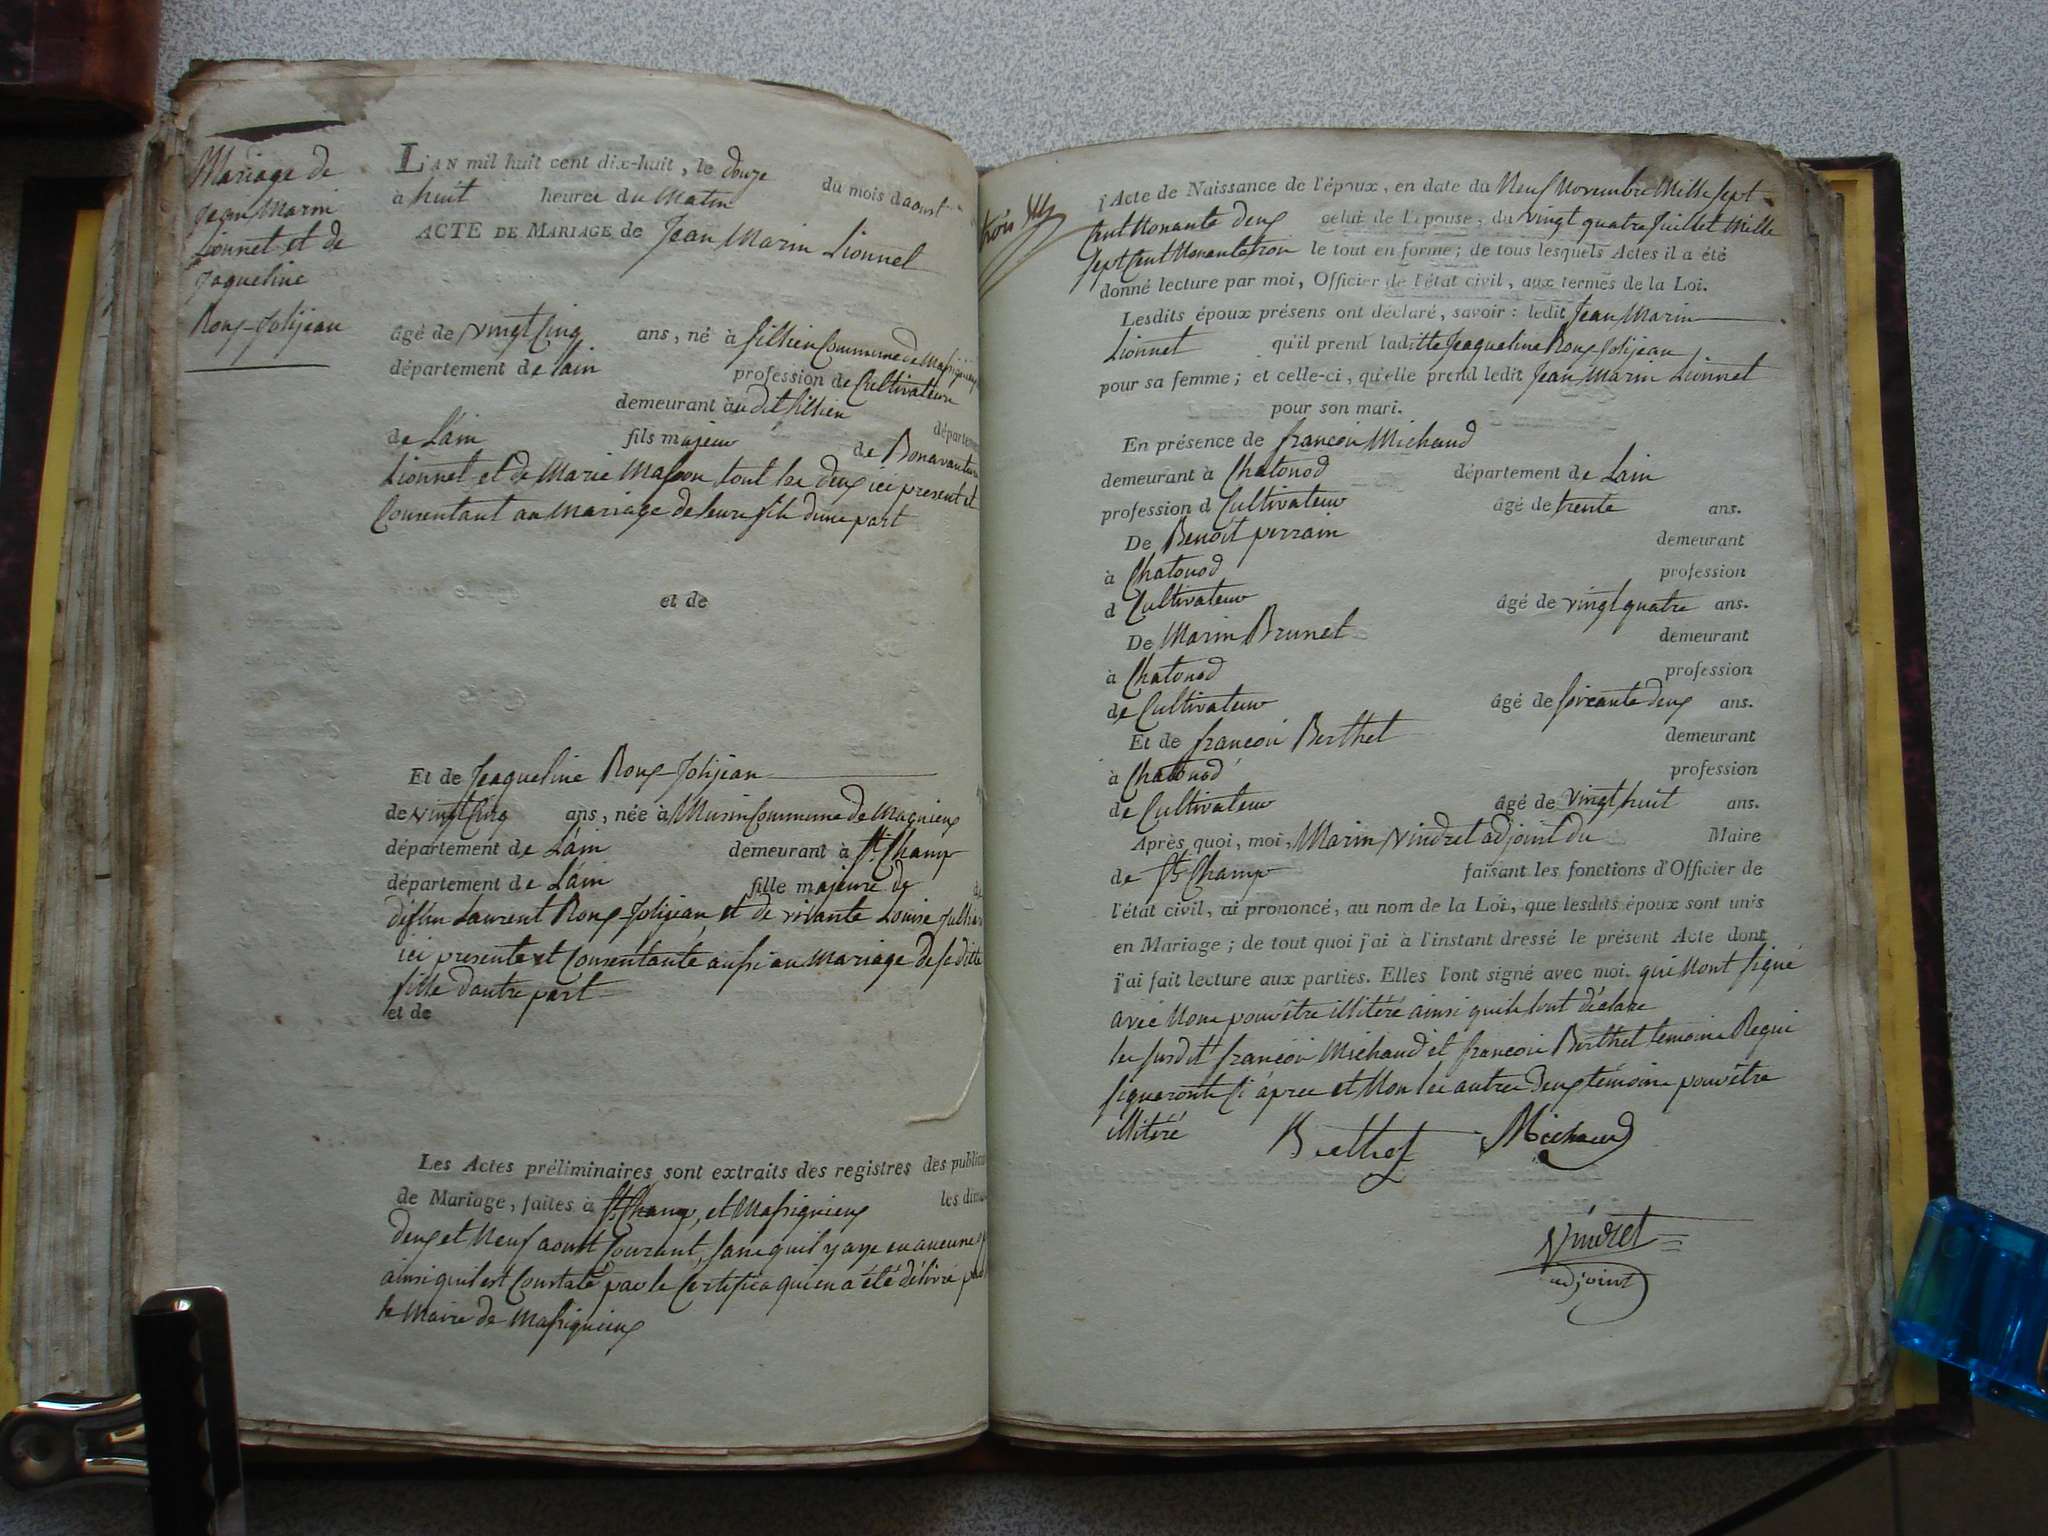 Mariage de
Jean Marin
Lionnet et de
Jaqueline
Roux-Jolijean
L'AN mil huit cent dix-huit, le douze du mois daoust
à huit heures du Matin
ACTE DE MARIAGE de Jean Marin Lionnel
âgé de vingt Cinq ans, né à Sillien Commune de Massignieux
département de lain profession de Cultivateur
demeurant au dit Sillien département
de Lain fils majeur de Bonavanture
Lionnet et de Marie Masson tout les deux ici present et
Consentant au Mariage de leur fils dune part
et de
Et de Jeaqueline Roux-Jolijean
de vingt Cinq ans, née à Musin Commune de Magnieux
département de Lain demeurant à St Champ
département de Lain fille majeure de de
défun Laurent Roux-Jolijean, et de vivante Louise
ici presente et Consentante aussi au Mariage de sa ditte
fille dautre part
et de
Les Actes préliminaires sont extraits des registres des publica
de Mariage, faites à St Champ, et Massignieux les dima
deux et Neuf aoust Courant, sans quil y aye eu aucune op
ainsi quil est Constaté par le Certifica qui en a été délivré par
le Maire de Massignieux
trois
l'Acte de Naissance de l'époux, en date du Neuf Novembre Mille Sept
Cent Nonante deux celui de l'épouse, du vingt quatre Juillet Mille
Sept Cent Nonante troi le tout en forme; de tous lesquels Actes il a été
donné lecture par moi, Officier de l'état civil, aux termes de la Loi.
Lesdits époux présens ont déclaré, savoir: ledit Jean Marin
Lionnet qu'il prend laditte Jeaqueline Roux-Jolijean
pour sa femme; et celle-ci, qu'elle prend ledit Jean Marin Lionnet
pour son mari.
En présence de françoi Michaud
demeurant à Chatonod département de Lain
profession d Cultivateur âgé de trente ans.
De Benoit perrain demeurant
à Chatonod profession
d Cultivateur âgé de vingt quatre ans.
De Marin Brunet demeurant
à Chatonod profession
de Cultivateur âgé de soixante deux ans.
Et de françoi Berthet demeurant
à Chatonod profession
de Cultivateur âgé de vingt huit ans.
Après quoi, moi, Marin vindret adjoint du Maire
de St Champ faisant les fonctions d'Officier de
l'état civil, ai prononcé, au nom de la Loi, que lesdits époux sont unis
en Mariage; de tout quoi j'ai à l'instant dressé le présent Acte dont
j'ai fait lecture aux parties. Elles l'ont signé avec moi. qui Nont Signé
avec Nous pour être illitéré ainsi quils lont déclare
les susdit françoi Michaud et françoi Berthet temoins Requi
signeront Ci apres et Non les autres deux témoins pour être
illitéré
Berthet Michaud
Vindret
adjoint